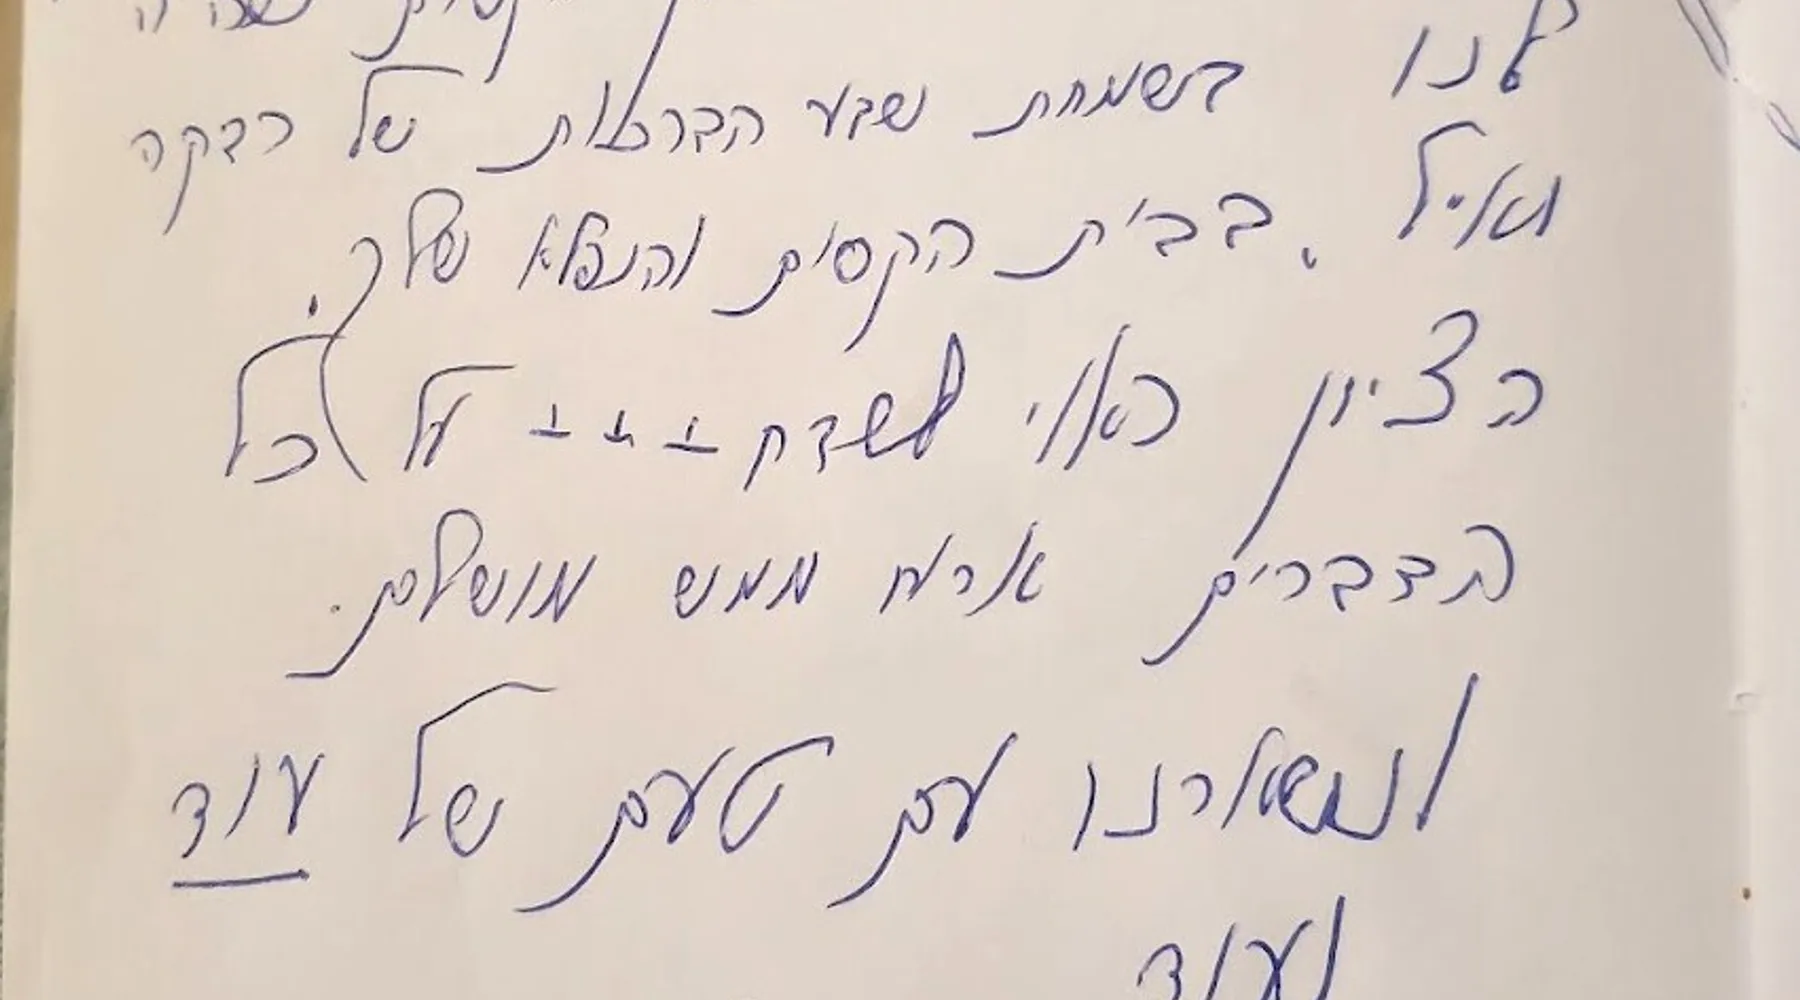 לנו בשמחת שבע הברכות של רבקה
ואיל. בבית הקסום והנפלא שלך.
הציון ראוי לשדק +++ על כל
הדברים ארוח ממש מושלם.
ונשארנו עם טעם של עוד
ועוד